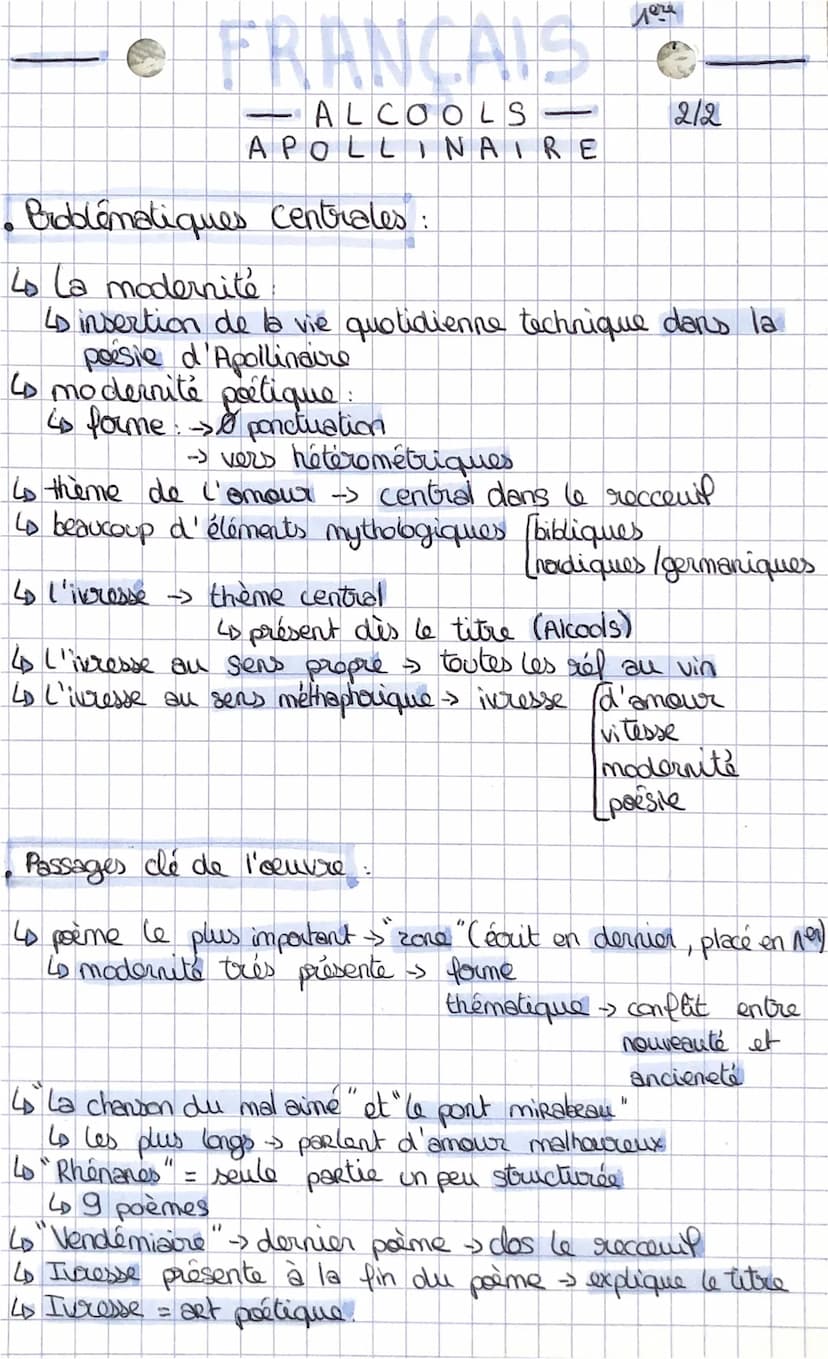 1ère
FRANÇAIS
— ALCOOLS — 2/2
APOLLINAIRE
• Problématiques centrales :
↳ La modernité :
↳ insertion de la vie quotidienne technique dans la
poésie d'Apollinaire
↳ modernité poétique :
↳ forme : → Ø ponctuation
→ vers hétérométriques
↳ thème de l'amour → central dans le recceuil
↳ beaucoup d'éléments mythologiques [bibliques
nordiques/germaniques
↳ l'ivresse → thème central
↳ présent dès le titre (Alcools)
↳ L'ivresse au sens propre → toutes les réf au vin
↳ L'ivresse au sens méthaphorique → ivresse [d'amour
vitesse
modernité
poésie
• Passages clé de l'oeuvre :
↳ poème le plus important → "zone" (écrit en dernier, placé en 1er)
↳ modernité très présente → forme
thématique → conflit entre
nouveauté et
ancieneté
↳ "La chanson du mal aimé" et "le pont mirabeau"
↳ les plus longs → parlent d'amour malheureux
↳ "Rhénanes" = seule partie un peu structurée
↳ 9 poèmes
↳ "Vendémiaire" → dernier poème → clos le recceuil
↳ Ivresse présente à la fin du poème → explique le titre
↳ Ivresse = art poétique.